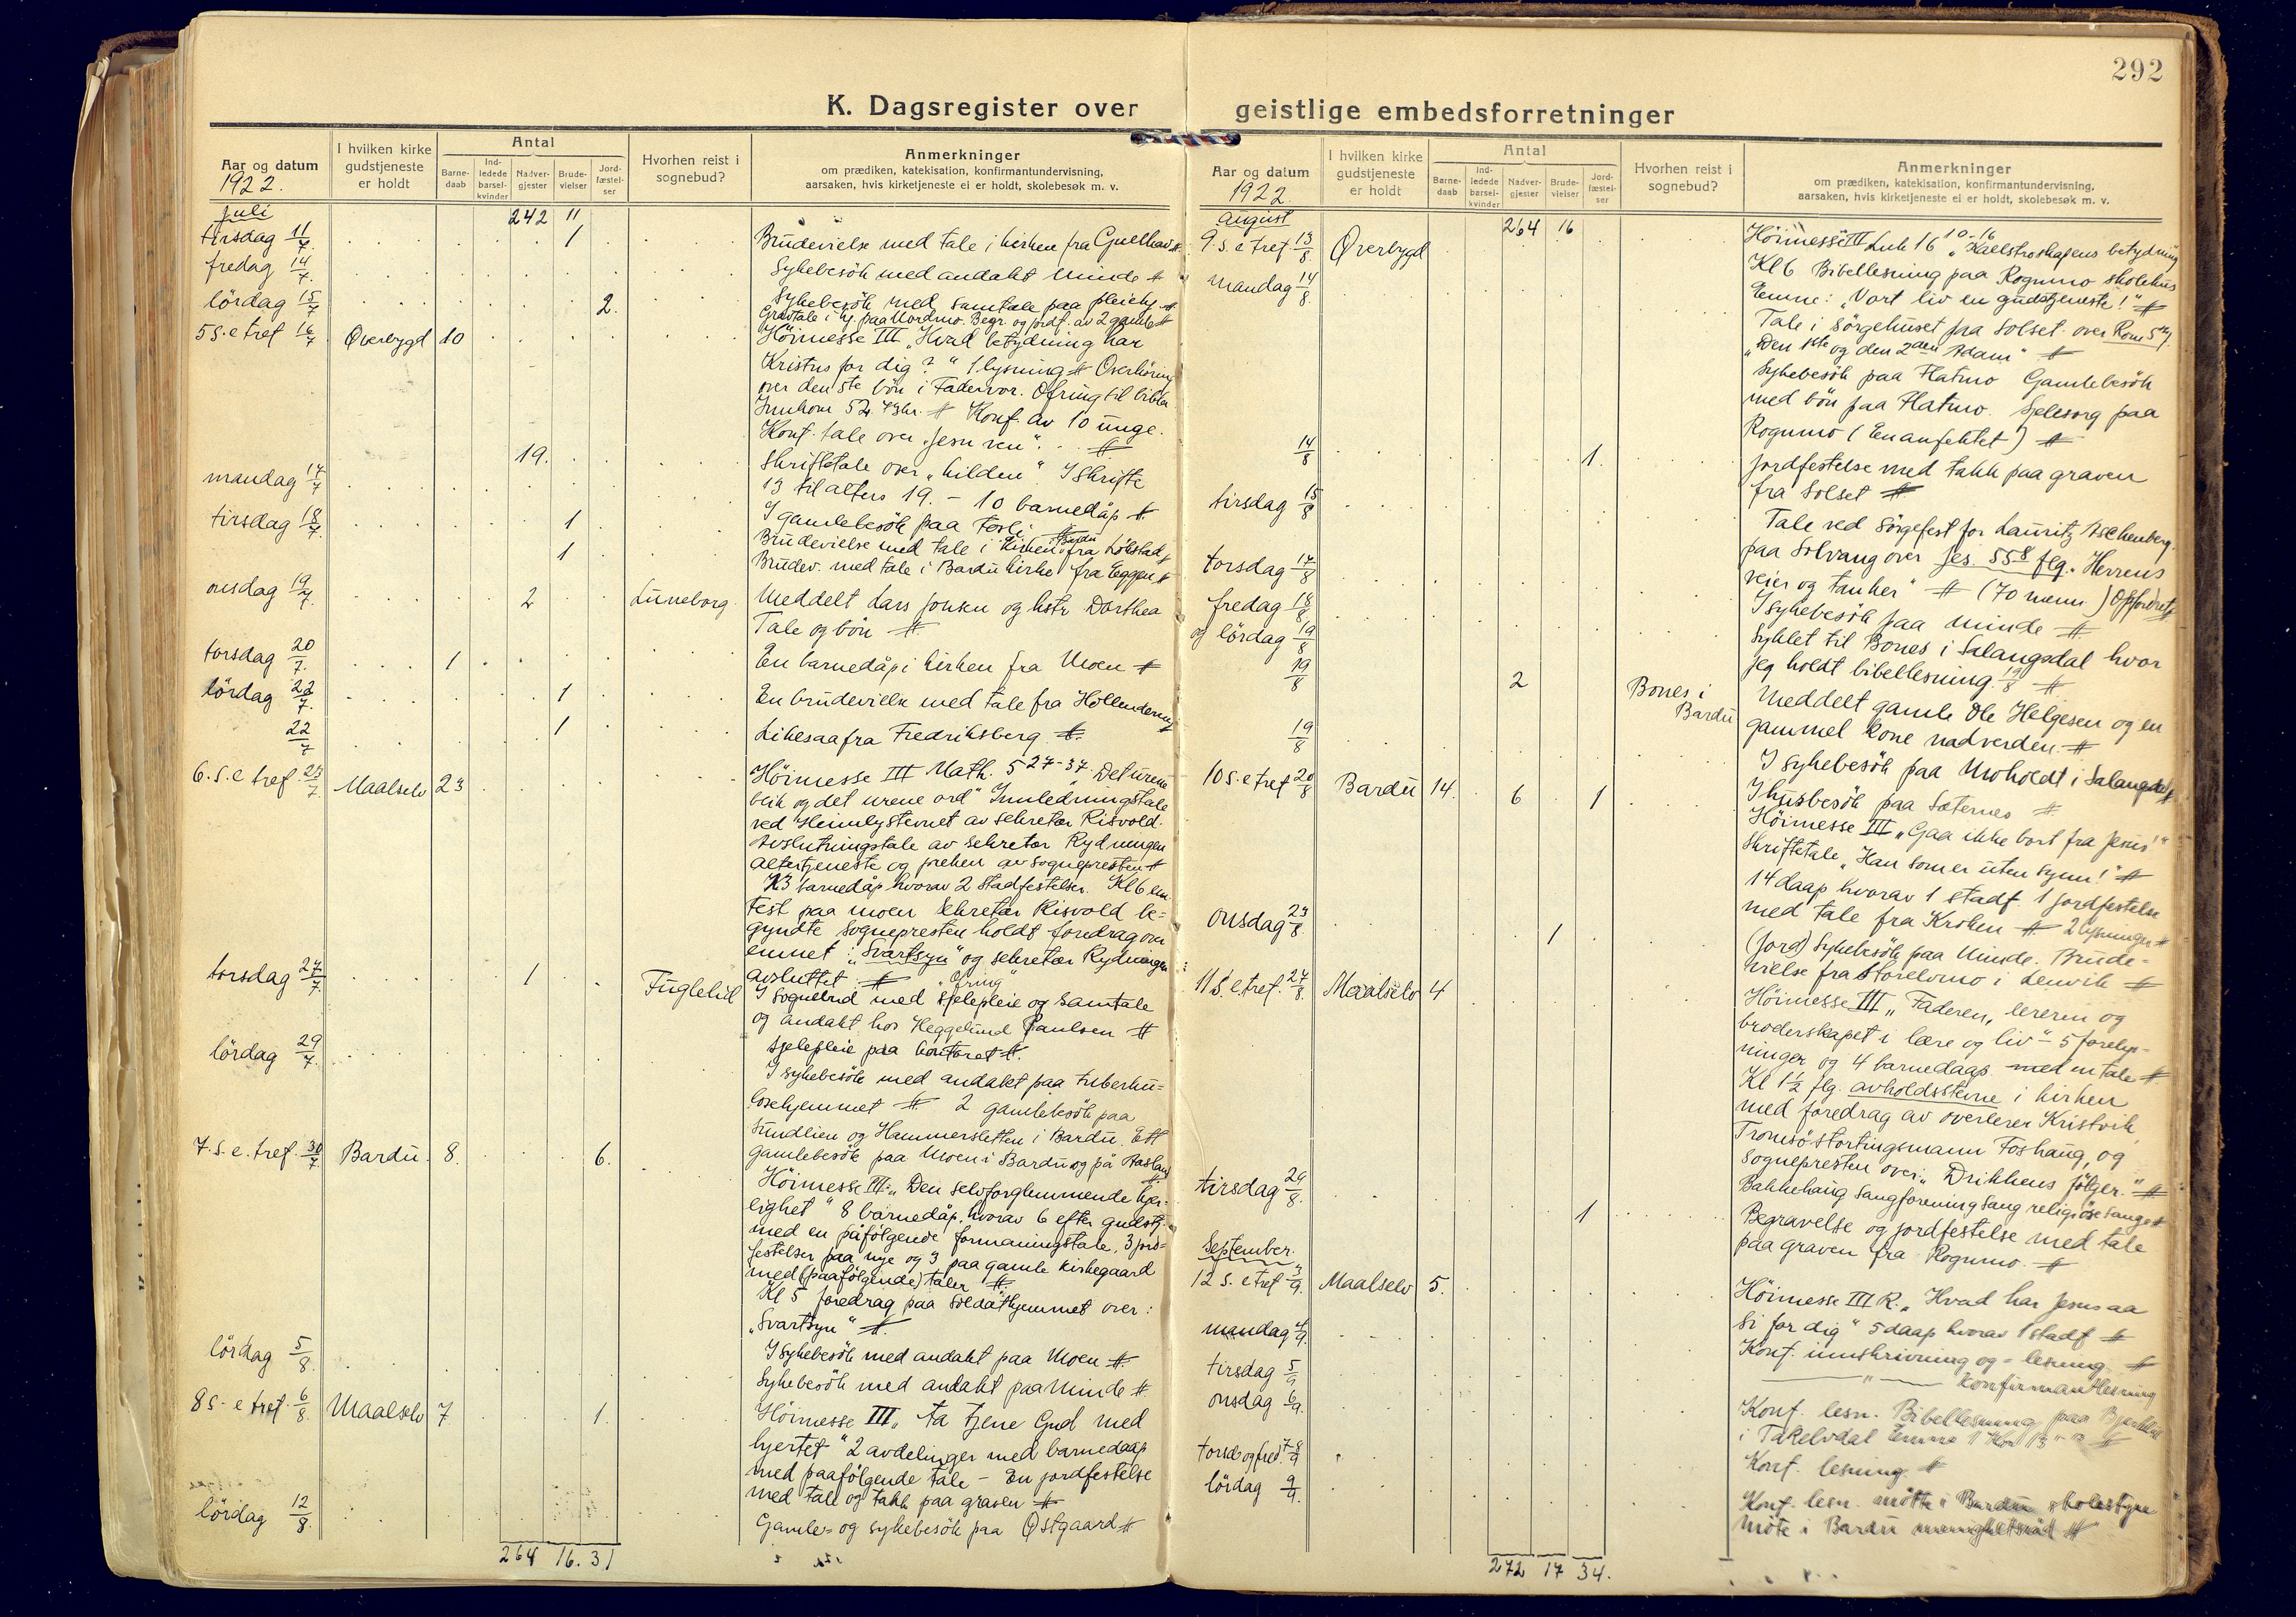 292
K. Dagsregister over geistlige embedsforretninger
Aar og datum
1922.
I hvilken kirke gudstjeneste er holdt
Antal
Barne-daab
Ind-ledede barsel-kvinder
Nadver-gjester
Brude-vielser
Jord-fæstel-ser
Hvorhen reist i sognebud?
Anmerkninger
om prædiken, katekisation, konfirmantundervisning,
aarsaken, hvis kirketjeneste ei er holdt, skolebesøk m. v.
Juli 242 11
tirsdag 11/7. 1 Brudevielse med tale i kirken fra Gullhav
fredag 14/7. Sykebesök med andakt Minde
lördag 15/7 2. Sykebesök med samtale paa pleiehj.
Gravtale i hj. paa Nordmo. Begr. og jordf. av 2 gamle
5 S. e tref 16/7. Øverbygd 10 Höimesse III „Hvad betydning har
Kristus for dig?" 1 lysning Overhöring
over den 5te bön i Fadervor. Ofring til bibler
Innkom 52.43kr. Konf. av 10 unge.
Konf. tale over „Jesu ven".
19. Skriftetale over „kilden". I skrifte
mandag 17/7 13 til alters 19. - 10 barnedåp
I gamlebesök paa Fosli
tirsdag 18/7. 1 Brudevielse med tale i Bardu kirke fra Lökstad
1 Brudev. med tale i Bardu kirke fra Eggen
onsdag 19/7. 2 Luneborg. Meddelt Lars Jonsen og hstr Dorthea
Tale og bön
torsdag 20/7. 1 En barnedåp i kirken fra Moen
lördag 22/7. 1 En brudevielse med tale fra Hollendereng
22/7 1 Likesaa fra Fredriksberg
6. S. e tref. 23/7. Maalselv 23 Höimesse III Math. 5 27-37. Det urene
blik og det urene ord" Innledningstale
ved Heimlystevnet av sekretær Risvold.
Avslutningstale av sekretær Rydningen
Altertjeneste og preken av sognepresten
23 barnedåp hvorav 2 stadfestelser. Kl 6 em
Fest paa Moen Sekretær Risvold be=
gyndte sognepresten holdt foredrag over
emnet: „Svartsyn" og sekretær Rydningen
avsluttet „Ofring"
torsdag 27/7. 1 Fuglelid I sognebud med sjelepleie og samtale
og andakt hos Heggelund Paulsen
Sjelepleie paa kontoret
lördag 29/7. I sykebesök med andakt paa tuberku=
losehjemmet 2 gamlebesök paa
Sundlien og Hammersletten i Bardu. Ett
gamlebesök paa Moen i Bardu og på Aasland
7. S. e. tref. 30/7. Bardu. 8. 6. Höimesse III: „Den selvforglemmende kjær-
lighet" 8 barnedåp, hvorav 6 efter gudstj.
med en påfölgende formaningstale, 3 jord=
festelser paa nye og 3 paa gamle kirkegaard
med (paafölgende) taler
Kl 5 foredrag paa Soldathjemmet over:
„Svartsyn"
lördag 5/8. I sykebesök med andakt paa Moen
Sykebesök med andakt paa Minde
8 S. e tref. 6/8. Maalselv 7 1. Höimesse III „Ta tjene Gud med
hjertet" 2 avdelinger med barnedaap
med paafölgende tale - En jordfestelse
med tale og takk paa graven
lördag 12/8. Gamle= og sykebesök paa Østgaard
264 16. 31
Aar og datum
1922.
I hvilken kirke gudstjeneste er holdt
Antal
Barne-daab
Ind-ledede barsel-kvinder
Nadver-gjester
Brude-vielser
Jord-fæstel-ser
Hvorhen reist i sognebud?
Anmerkninger
om prædiken, katekisation, konfirmantundervisning,
aarsaken, hvis kirketjeneste ei er holdt, skolebesøk m. v.
August 264 16
9. S. e tref. 13/8 Øverbygd Höimesse III Luk 16 10-16 „Kallstroskapens betydning
mandag 14/8 Kl 6 Bibellesning paa Rognmo skolehus
Emne: „Vort liv en gudstjeneste!"
Tale i sörgehuset paa Solset over Rom 5
„Den 1ste og den 2den Adam"
Sykebesök paa Flatmo Gamlebesök
med bön paa Flatmo. Sjelesorg paa
Rognmo (En anfektet)
14/8 1. Jordfestelse med takk paa graven
fra Solset
tirsdag 15/8 Tale ved sörgefest for Lauritz Aschenberg
paa Solvang over Jes. 55 8 flg. „Herrens
veier og tanker" (70 menn.) Opfordret
torsdag 17/8 I sykebesök paa Minde
fredag 18/8
og lördag 19/8 Syklet til Bones i Salangsdal hvor
jeg holdt bibellesning 19/8
19/8 2 Bones i Bardu Meddelt gamle Ole Helgesen og en
gammel kone nadverden.
19/8 I sykebesök paa Moholdt i Salangsdal
I husbesök paa Sæternes
10 S. e tref 20/8 Bardu 14. 6 1 Höimesse III „Gaa ikke bort fra Jesus!"
Skriftetale „Han som er uten synn!"
14 daap hvorav 1 stadf 1 jordfestelse
med tale fra Kroken 2 lysninger
onsdag 23/8. 1 (Jord) Sykebesök paa Minde. Brude=
vielse fra Storelvmo i Lenvik
11 S. e. tref. 27/8. Maalselv 4 Höimesse III „Faderen, læreren og
broderskapet i lære og liv" - 5 forelys-
ninger og 4 barnedaap med en tale
Kl 1½ flg. avholdsstevne i kirken
med foredrag av overlærer Kristvik,
Tromsö stortingsmann Foshaug, og
sognepresten over: „Drikkens fölger."
Bakkehaug sangforening sang religiöse sanger
tirsdag 29/8. 1 Begravelse og jordfestelse med tale
paa graven fra Rognmo.
September.
12 S. e tref 3/9. Maalselv 5. Höimesse III R. „Hvad har Jesus aa
si for dig" 5 daap hvorav 1 stadf
mandag 4/9. Konf. innskrivning og - lesning
tirsdag 5/9 — " — konfirmantlesning
onsdag 6/9. Konf. lesn. Bibellesning paa
i Takelvdal Emne 1 Kor 13
torsd og fred. 7-8/9 Konf. lesning.
lördag 9/9. Konf. lesn. möte i Bardu skolestyre
möte i Bardu menighetsråd
272 17 34.